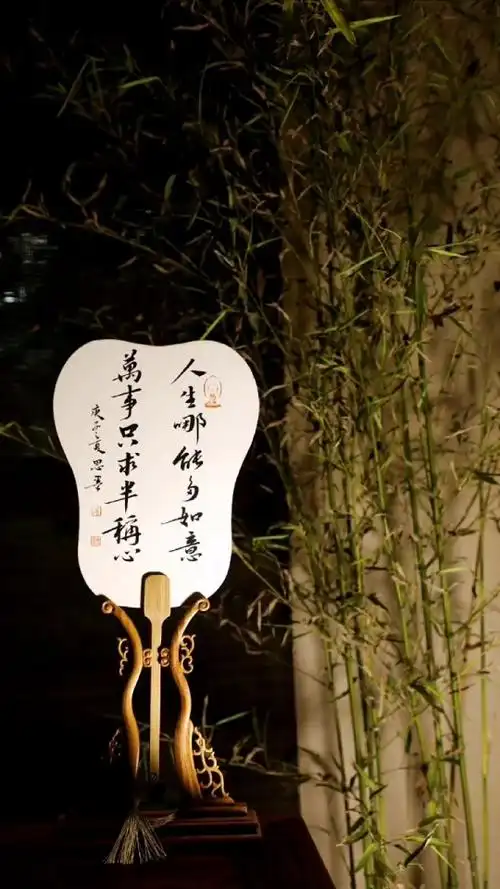 人生哪能多如意
萬事只求半稱心
庚子夏思